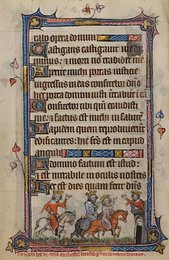 rabo opera domini
Castigans castigauit me do
minus: & morti non tradidit me
Aperite michi portas iusticie
ingressus in eas confitebor dn̄o
hec porta domini iusti intrabunt in
Confitebor tibi qm̄ exaudisti
me: & factus es michi in salutem
Lapidem quem reprobauerunt
edificantes: hic fc̄s est in caput
anguli
A domino factum est istud
et est mirabile in oculis nostris
Hec est dies quam fecit dn̄s